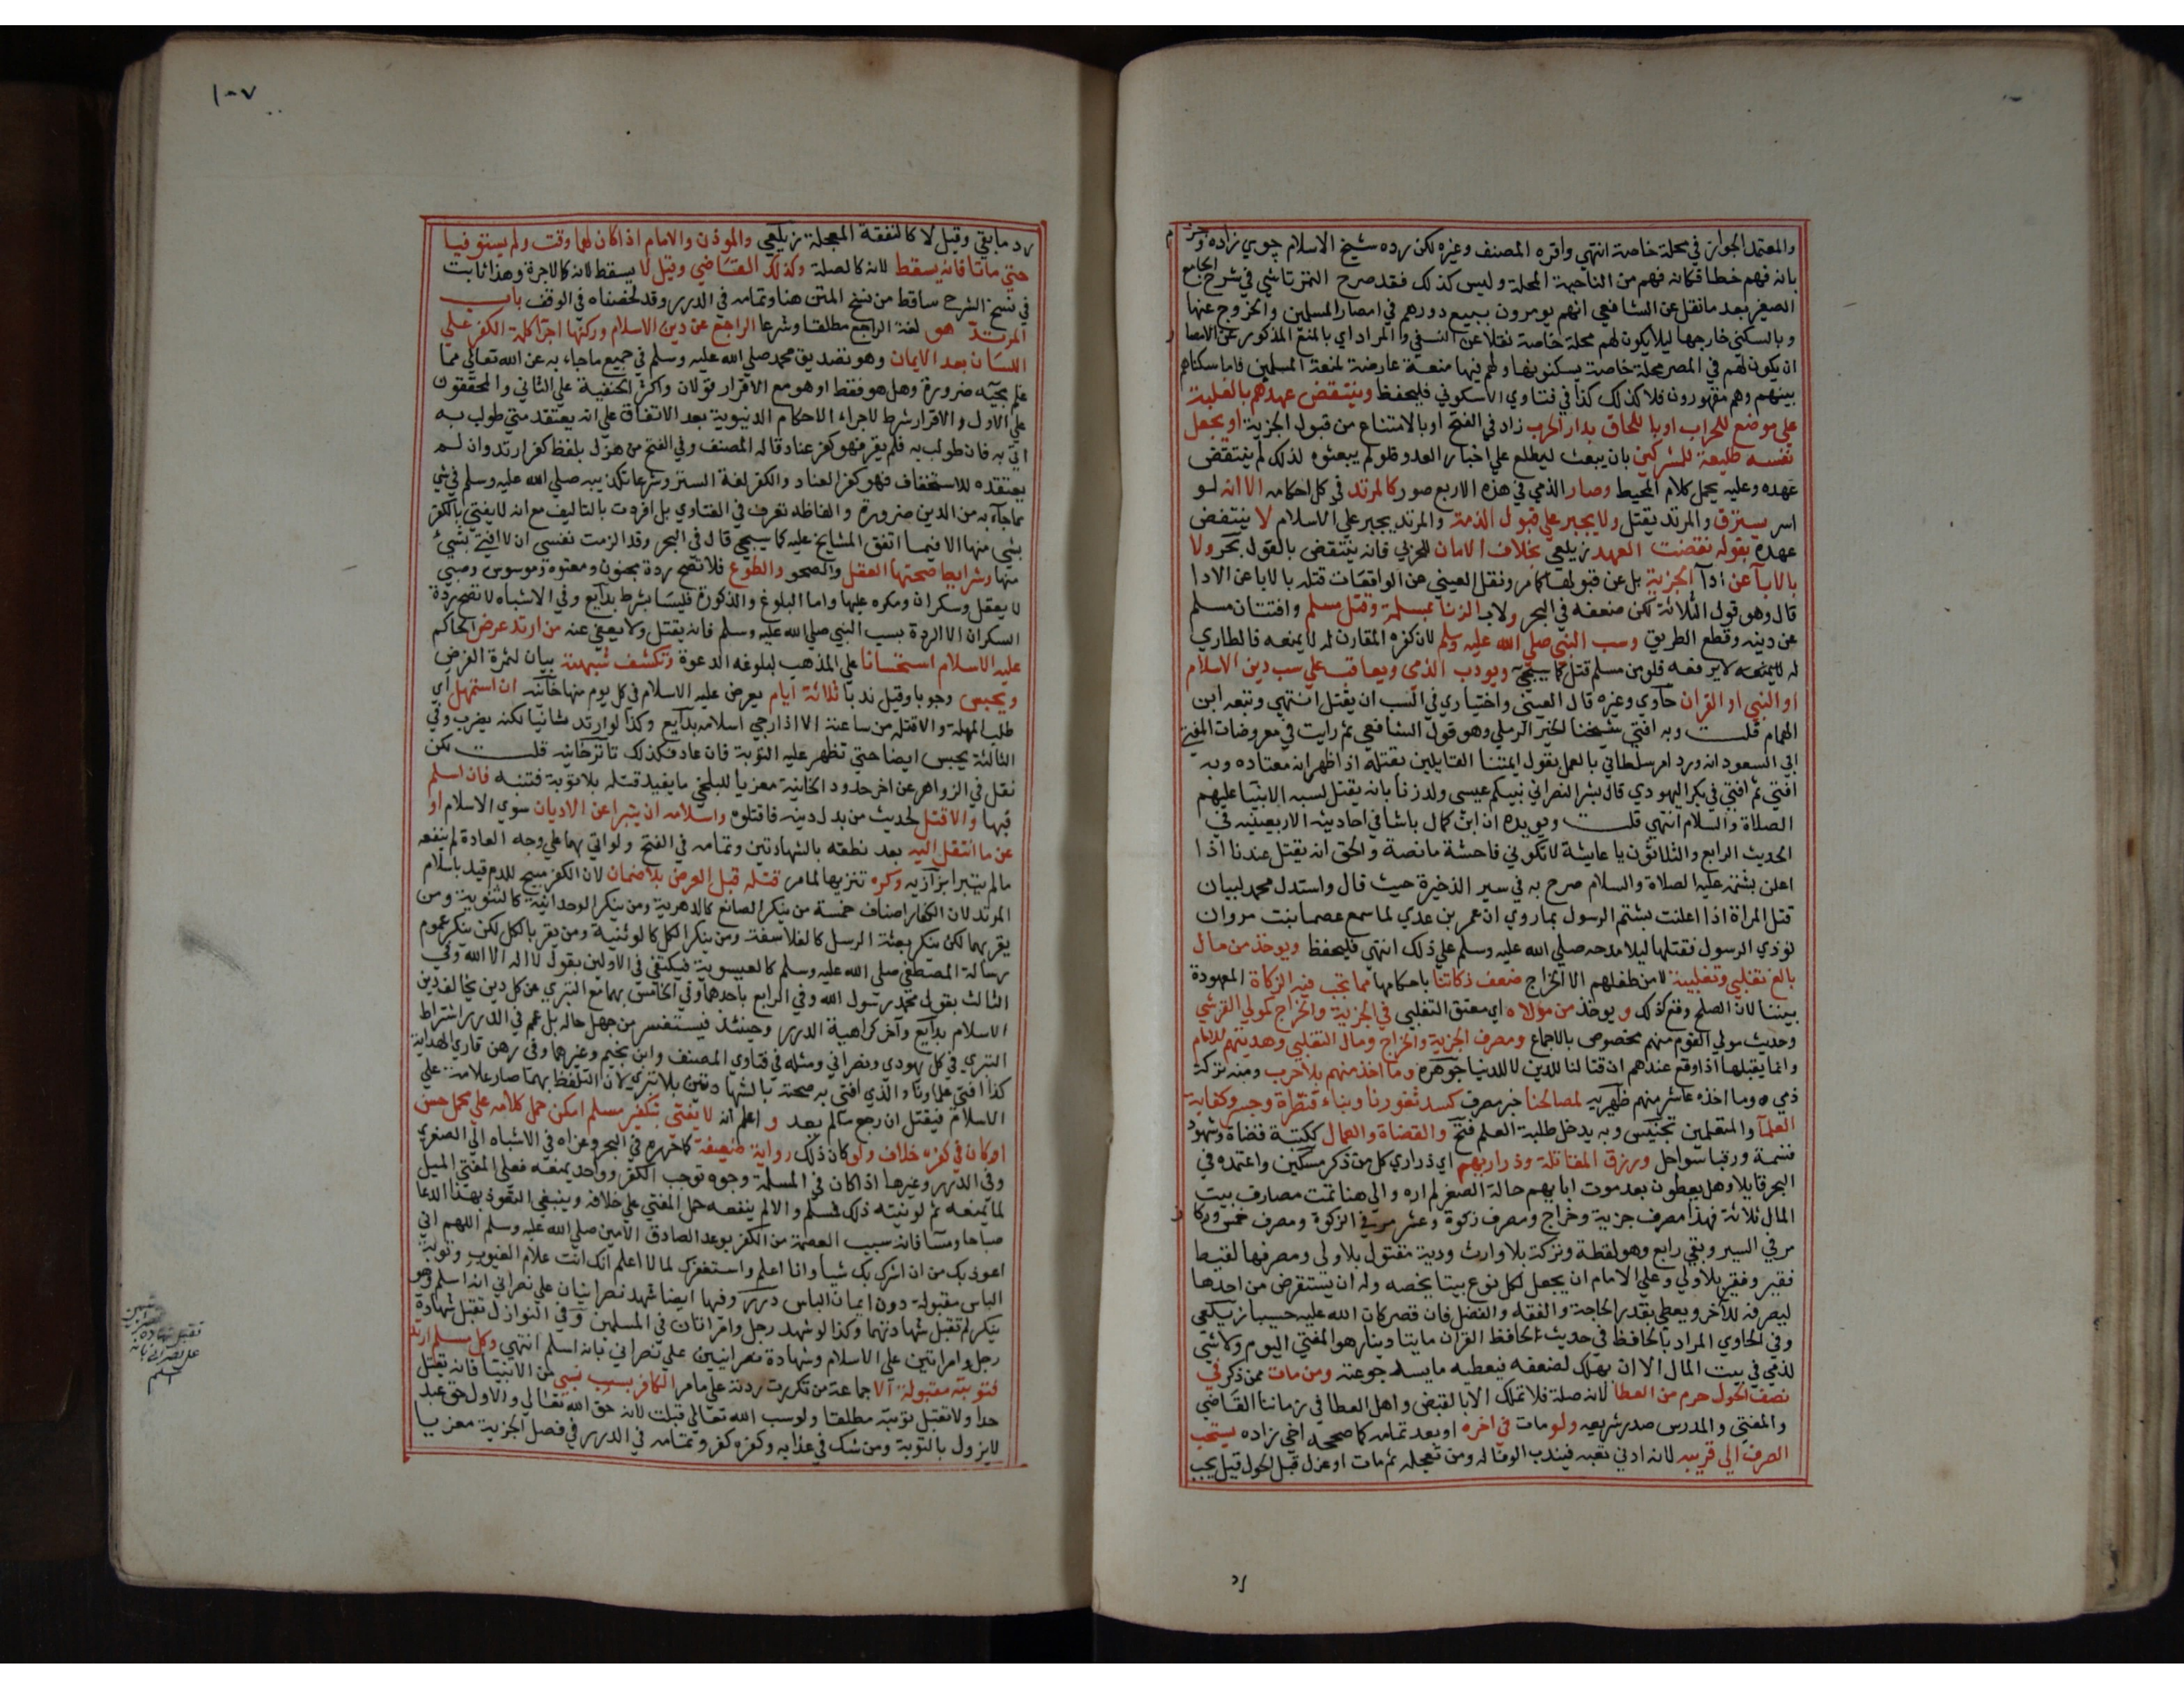 والمعتمد الجواز في محلة خاصة انتهي واقره المصنف وغيره لكن رده شيخ الاسلام جوي زاده وجزم
بانه فهم خطا فكانه فهم من الناحية المحلة وليس كذلك فقد صرح التمرتاشي في شرح الجامع
الصغير بعد ما نقل عن الشافعي انهم يومرون ببيع دورهم في امصار المسلمين والخروج عنها
وبالسكني خارجها ليلا يكون لهم محلة خاصة نقلا عن النسفي والمراد اي بالمنع المذكور عن الامصار
ان يكون لهم في المصر محلة خاصة يسكنونها ولهم فيها منعة عارضة لمنعة المسلمين فاما سكناهم
بينهم وهم مقهورون فلا كذلك كذا في فتاوي الاسكوبي فليحفظ وينتقض عهدهم بالغلبة
علي موضع للحراب او باللحاق بدار الحرب زاد في الفتح او بالامتناع من قبول الجزية او يجعل
نفسه طليعة للمشركين بان يبعث ليطلع علي اخبار العدو فلو لم يبعثوه لذلك لم ينتقض
عهده وعليه يحمل كلام المحيط وصار الذمي في هذه الاربع صور كالمرتد في كل احكامه الا انه لو
اسر يسترق والمرتد يقتل ولا يجبر علي قبول الذمة والمرتد يجبر علي الاسلام لا ينتقض
عهده بقوله نقضت العهد زيلعي بخلاف الامان للحربي فانه ينتقض بالقول بحر ولا
بالابآ عن ادآ الجزية بل عن قبولها كما مر ونقل العيني عن الواقعات قتله بالابا عن الادا
قال وهو قول الثلاثة لكن ضعفه في البحر ولا بالزنا بمسلمة وقتل مسلم وافتتان مسلم
عن دينه وقطع الطريق وسب النبي صلي الله عليه وسلم لان كفره المقارن له لا يمنعه فالطاري
له لا يرفعه فلو من مسلم قتل كما سيجي ويودب الذمي ويعاقب علي سب دين الاسلام
او النبي او القران حاوي وغيره قال العيني واختياري في السب ان يقتل انتهي وتبعه ابن
الهمام قلت وبه افتي شيخنا الخير الرملي وهو قول الشافعي ثم رايت في معروضات المفتي
ابي السعود انه ورد امر سلطاني بالعمل بقول ايمتنا القايلين بقتله اذا ظهر انه معتاده وبه
افتي ثم افتي في بكر اليهودي قال بشر النصراني نبيكم عيسي ولد زنا بانه يقتل لسبه الانبيا عليهم
الصلاة والسلام انتهي قلت ويويده ان ابن كمال باشا في احاديثه الاربعينيه في
الحديث الرابع والثلاثون يا عايشة لا تكوني فاحشة ما نصه والحق انه يقتل عندنا اذا
اعلن بشتمه عليه الصلاة والسلام صرح به في سير الذخيرة حيث قال واستدل محمد لبيان
قتل المراة اذا اعلنت بشتم الرسول بما روي ان عمر بن عدي لما سمع عصما بنت مروان
توذي الرسول فقتلها ليلا مدحه صلي الله عليه وسلم علي ذلك انتهي فليحفظ ويوخذ من مال
بالغ تغلبي وتغلبية لا من طفلهم الا الخراج ضعف زكاتنا باحكامها مما تجب فيه الزكاة المعهودة
بيننا لان الصلح وقع كذلك ويوخذ من مولاه اي معتق التغلبي في الجزية والخراج كمولي القرشي
وحديث مولي القوم منهم مخصوص بالاجماع ومصرف الجزية والخراج ومال التغلبي وهديتهم للامام
وانما يقبلها اذا وقع عندهم ان قتالنا للدين لا للدنيا جوهره وما اخذ منهم بلا حرب ومنه تركة
ذمي وما اخذه عاشر منهم ظهيرية لمصالحنا خبر مصرف كسد ثغورنا وبناء قنطرة وجسر وكفاية
العلمآ والمتعلمين تجنيس وبه يدخل طلبة العلم فتح والقضاة والعمال ككتبة قضاة وشهود
قسمة ورقبا سواحل ورزق المقاتلة وذراريهم اي ذراري كل من ذكر مسكين واعتمده في
البحر قايلا وهل يعطون بعد موت ابايهم حالة الصغر لم اره والي هنا تمت مصارف بيت
المال ثلاثة فهذا مصرف جزية وخراج ومصرف زكوة وعشر مر في الزكوة ومصرف خمس وركاز
مر في السير وبقي رابع وهو لقطة وتركة بلا وارث ودية مقتول بلا ولي ومصرفها لقيط
فقير وفقير بلا ولي وعلي الامام ان يجعل لكل نوع بيتا يخصه وله ان يستقرض من احدها
ليصرفه للاخر ويعطي بقدر الحاجة والفقه والفضل فان قصر كان الله عليه حسيبا زيلعي
وفي الحاوي المراد بالحافظ في حديث لحافظ القران مايتا دينار هو المفتي اليوم ولا شي
لذمي في بيت المال الا ان يهلك لضعفه فيعطيه ما يسد جوعته ومن مات ممن ذكر في
نصف الحول حرم من العطا لانه صلة فلا تملك الا بالقبض واهل العطا في زماننا القاضي
والمفتي والمدرس صدر شريعه ولو مات في اخره او بعد تمامه كما صححه اخي زاده يستحب
الصرف الي قريبه لانه ادني تعبه فيندب الوفا له ومن تعجله ثم مات او عزل قبل الحول قيل يجب
رد
١٠٧
رد ما بقي وقيل لا كالنفقة المعجلة زيلعي والموذن والامام اذا كان لهما وقت ولم يستوفيا
حتي ماتا فانه يسقط لانه كالصلة وكذلك القاضي وقيل لا يسقط لانه كالاجرة وهذا ثابت
في نسخ الشرح ساقط من نسخ المتن هنا وتمامه في الدرر وقد لخصناه في الوقف باب
المرتد هو لغة الراجع مطلقا وشرعا الراجع عن دين الاسلام وركنها اجرآ كلمة الكفر علي
اللسان بعد الايمان وهو تصديق محمد صلي الله عليه وسلم في جميع ما جاء به عن الله تعالي مما
علم مجيه ضرورة وهل هو فقط او هو مع الاقرار قولان واكثر الحنفية علي الثاني والمحققون
علي الاول والاقرار شرط لاجراء الاحكام الدنيوية بعد الاتفاق علي انه يعتقد متي طولب به
اتي به فان طولب به فلم يقر فهو كفر عناد قاله المصنف وفي الفتح من هزل بلفظ كفر ارتد وان لم
يعتقده للاستخفاف فهو ككفر العناد والكفر لغة الستر وشرعا تكذيبه صلي الله عليه وسلم في شي
مما جآء به من الدين ضرورة والفاظه تعرف في الفتاوي بل افردت بالتاليف مع انه لا يفتي بالكفر
بشي منها الا فيما اتفق المشايخ عليه كما سيجي قال في البحر وقد الزمت نفسي ان لا افتي بشيء
منها وشرايط صحتها العقل والصحو والطوع فلا تصح ردة مجنون ومعتوه وموسوس وصبي
لا يعقل وسكران ومكره عليها واما البلوغ والذكورة فليسا بشرط بدايع وفي الاشباه لا تصح ردة
السكران الا الردة بسب النبي صلي الله عليه وسلم فانه يقتل ولا يعفي عنه من ارتد عرض الحاكم
عليه الاسلام استحسانا علي المذهب لبلوغه الدعوة وتكشف شبهته بيان لثمرة العرض
ويحبس وجوبا وقيل ندبا ثلاثة ايام يعرض عليه الاسلام في كل يوم منها خانيه ان استمهل اي
طلب المهلة والا قتله من ساعته الا اذا رجي اسلامه بدايع وكذا لو ارتد ثانيا لكنه يضرب وفي
الثالثة يحبس ايضا حتي تظهر عليه التوبة فان عاد فكذلك تاترخانيه قلت لكن
نقل في الزواهر عن اخر حدود الخانية معزيا للبلخي ما يفيد قتله بلا توبة فتنبه فان اسلم
فيها والا قتل لحديث من بدل دينه فاقتلوه واسلامه ان يتبرا عن الاديان سوي الاسلام او
عن ما انتقل اليه بعد نطقه بالشهادتين وتمامه في الفتح ولو اتي بهما علي وجه العادة لم ينفعه
ما لم يتبرا بزازيه وكره تنزيها لما مر قتله قبل العرض بلا ضمان لان الكفر مبيح للدم قيد باسلام
المرتد لان الكفار اصناف خمسة من ينكر الصانع كالدهرية ومن ينكر الوحدانية كالثنوية ومن
يقر بهما لكن ينكر بعثة الرسل كالفلاسفة ومن ينكر الكل كالوثنية ومن يقر بالكل لكن ينكر عموم
رسالة المصطفي صلي الله عليه وسلم كالعيسوية فيكتفي في الاولين بقول لا اله الا الله وفي
الثالث بقول محمد رسول الله وفي الرابع باحدهما وفي الخامس بهما مع التبري عن كل دين يخالف دين
الاسلام بدايع وآخر كراهية الدرر وحينئذ فيستفسر من جهل حاله بل عمم في الدرر اشتراط
التبري في كل يهودي ونصراني ومثله في فتاوي المصنف وابن نجيم وغيرهما وفي رهن قاري الهداية
كذا افتي علماونا والذي افتي به صحته بالشهادتين بلا تبري لان التلفظ بهما صار علامة علي
الاسلام فيقتل ان رجع ما لم يعد واعلم انه لا يفتي بتكفير مسلم امكن حمل كلامه علي محمل حسن
او كان في كفره خلاف ولو كان ذلك رواية ضعيفة كما حرره في البحر وعزاه في الاشباه الي الصغري
وفي الدرر وغيرها اذا كان في المسلة وجوه توجب الكفر وواحد يمنعه فعلي المفتي الميل
لما يمنعه ثم لو نيته ذلك فمسلم والا لم ينفعه حمل المفتي علي خلافه وينبغي التعوذ بهذا الدعا
صباحا ومسآ فانه سبب العصمة من الكفر بوعد الصادق الامين صلي الله عليه وسلم اللهم اني
اعوذ بك من ان اشرك بك شيا وانا اعلم واستغفرك لما لا اعلم انك انت علام الغيوب وتوبة
الباس مقبولة دون ايمان الباس درر وفيها ايضا شهد نصرانيان علي نصراني انه اسلم وهو
ينكر لم تقبل شهادتهما وكذا لو شهد رجل وامراتان في المسلمين وفي النوازل تقبل شهادة
رجل وامراتين علي الاسلام وشهادة نصرانيين علي نصراني بانه اسلم انتهي وكل مسلم ارتد
فتوبته مقبولة الا جماعة من تكررت ردته علي ما مر الكافر بسب نبي من الانبيا فانه يقتل
حدا ولا تقبل توبته مطلقا ولو سب الله تعالي قبلت لانه حق الله تعالي والاول حق عبد
لا يزول بالتوبة ومن شك في عذابه وكفره كفر وتمامه في الدرر في فصل الجزية معزيا
تقبل شهادة
علي نصراني بانه
اسلم